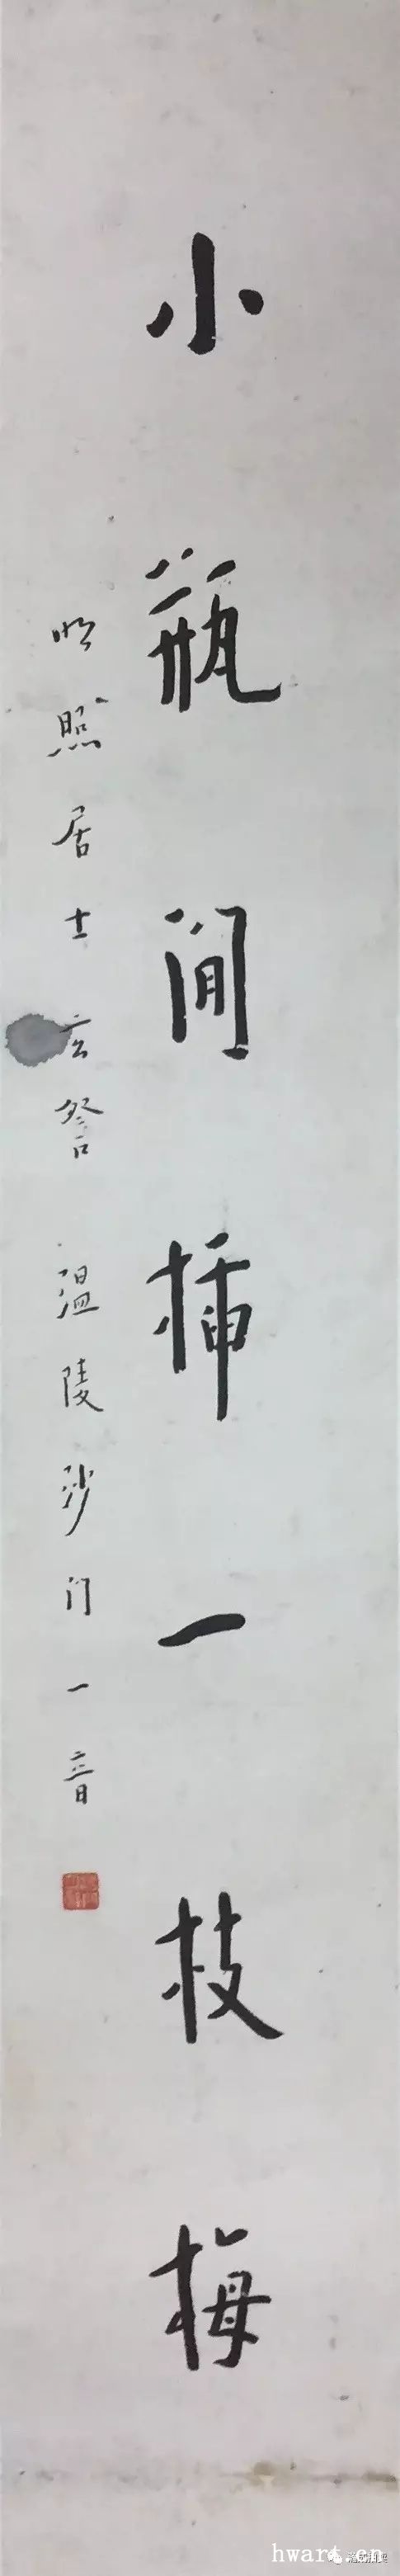 小瓶閒插一枝梅
明照居士玄詧 温陵沙门一音
hwart.cn